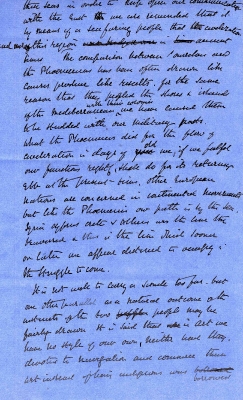 these seas in order to keep open our communication
with the East we are reminded that it
by means of a seafaring people that the civilization
of this region
The comparison between ourselves and
the Phoenicians has been often drawn like
causes produce like results. for the same
reason that they peopled the shores & islands
of the Mediterranean with their colonies we have caused them
to be studded with our military posts.
what the Phoenicians did for the flow of
civilization in days of old we if we fulfil
our functions rightly shall do for its
Ebb at the present time, other European
nations are concerned in continental movements
but like the Phoenicians our path is by the sea
Cyprus Crete & others are the line they
traversed & this is the line which sooner
or later we appear destined to occupy
the struggle to come.
It is not well to carry a simile too far. but
one other parallel as a natural outcome of the
of the two people may be
fairly drawn. It is said that in art we
have no style of our own, neither have they,
devoted to navigation and commerce their
art instead of being indigenous was borrowed